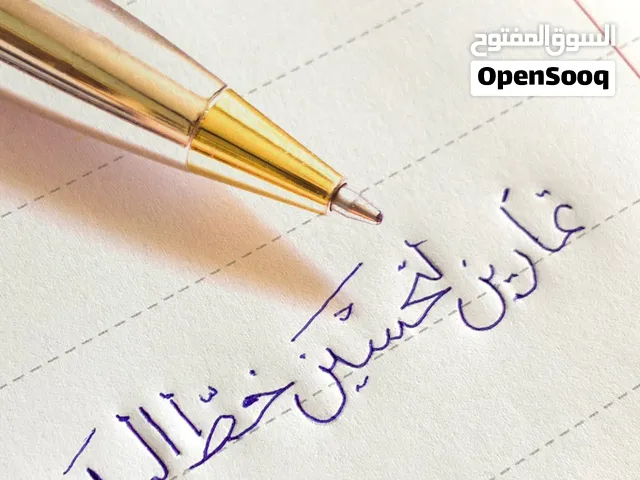 السوق المفتوح
OpenSooq
تمارين لتحسين خط